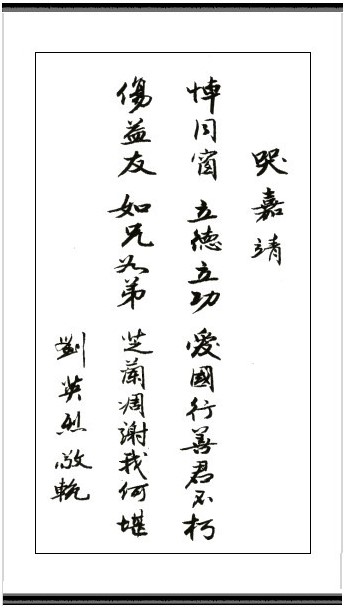 哭嘉靖
悼同窗 立德立功 愛國行善君不朽
傷益友 如兄如弟 芝蘭凋謝我何堪
劉英烈敬輓